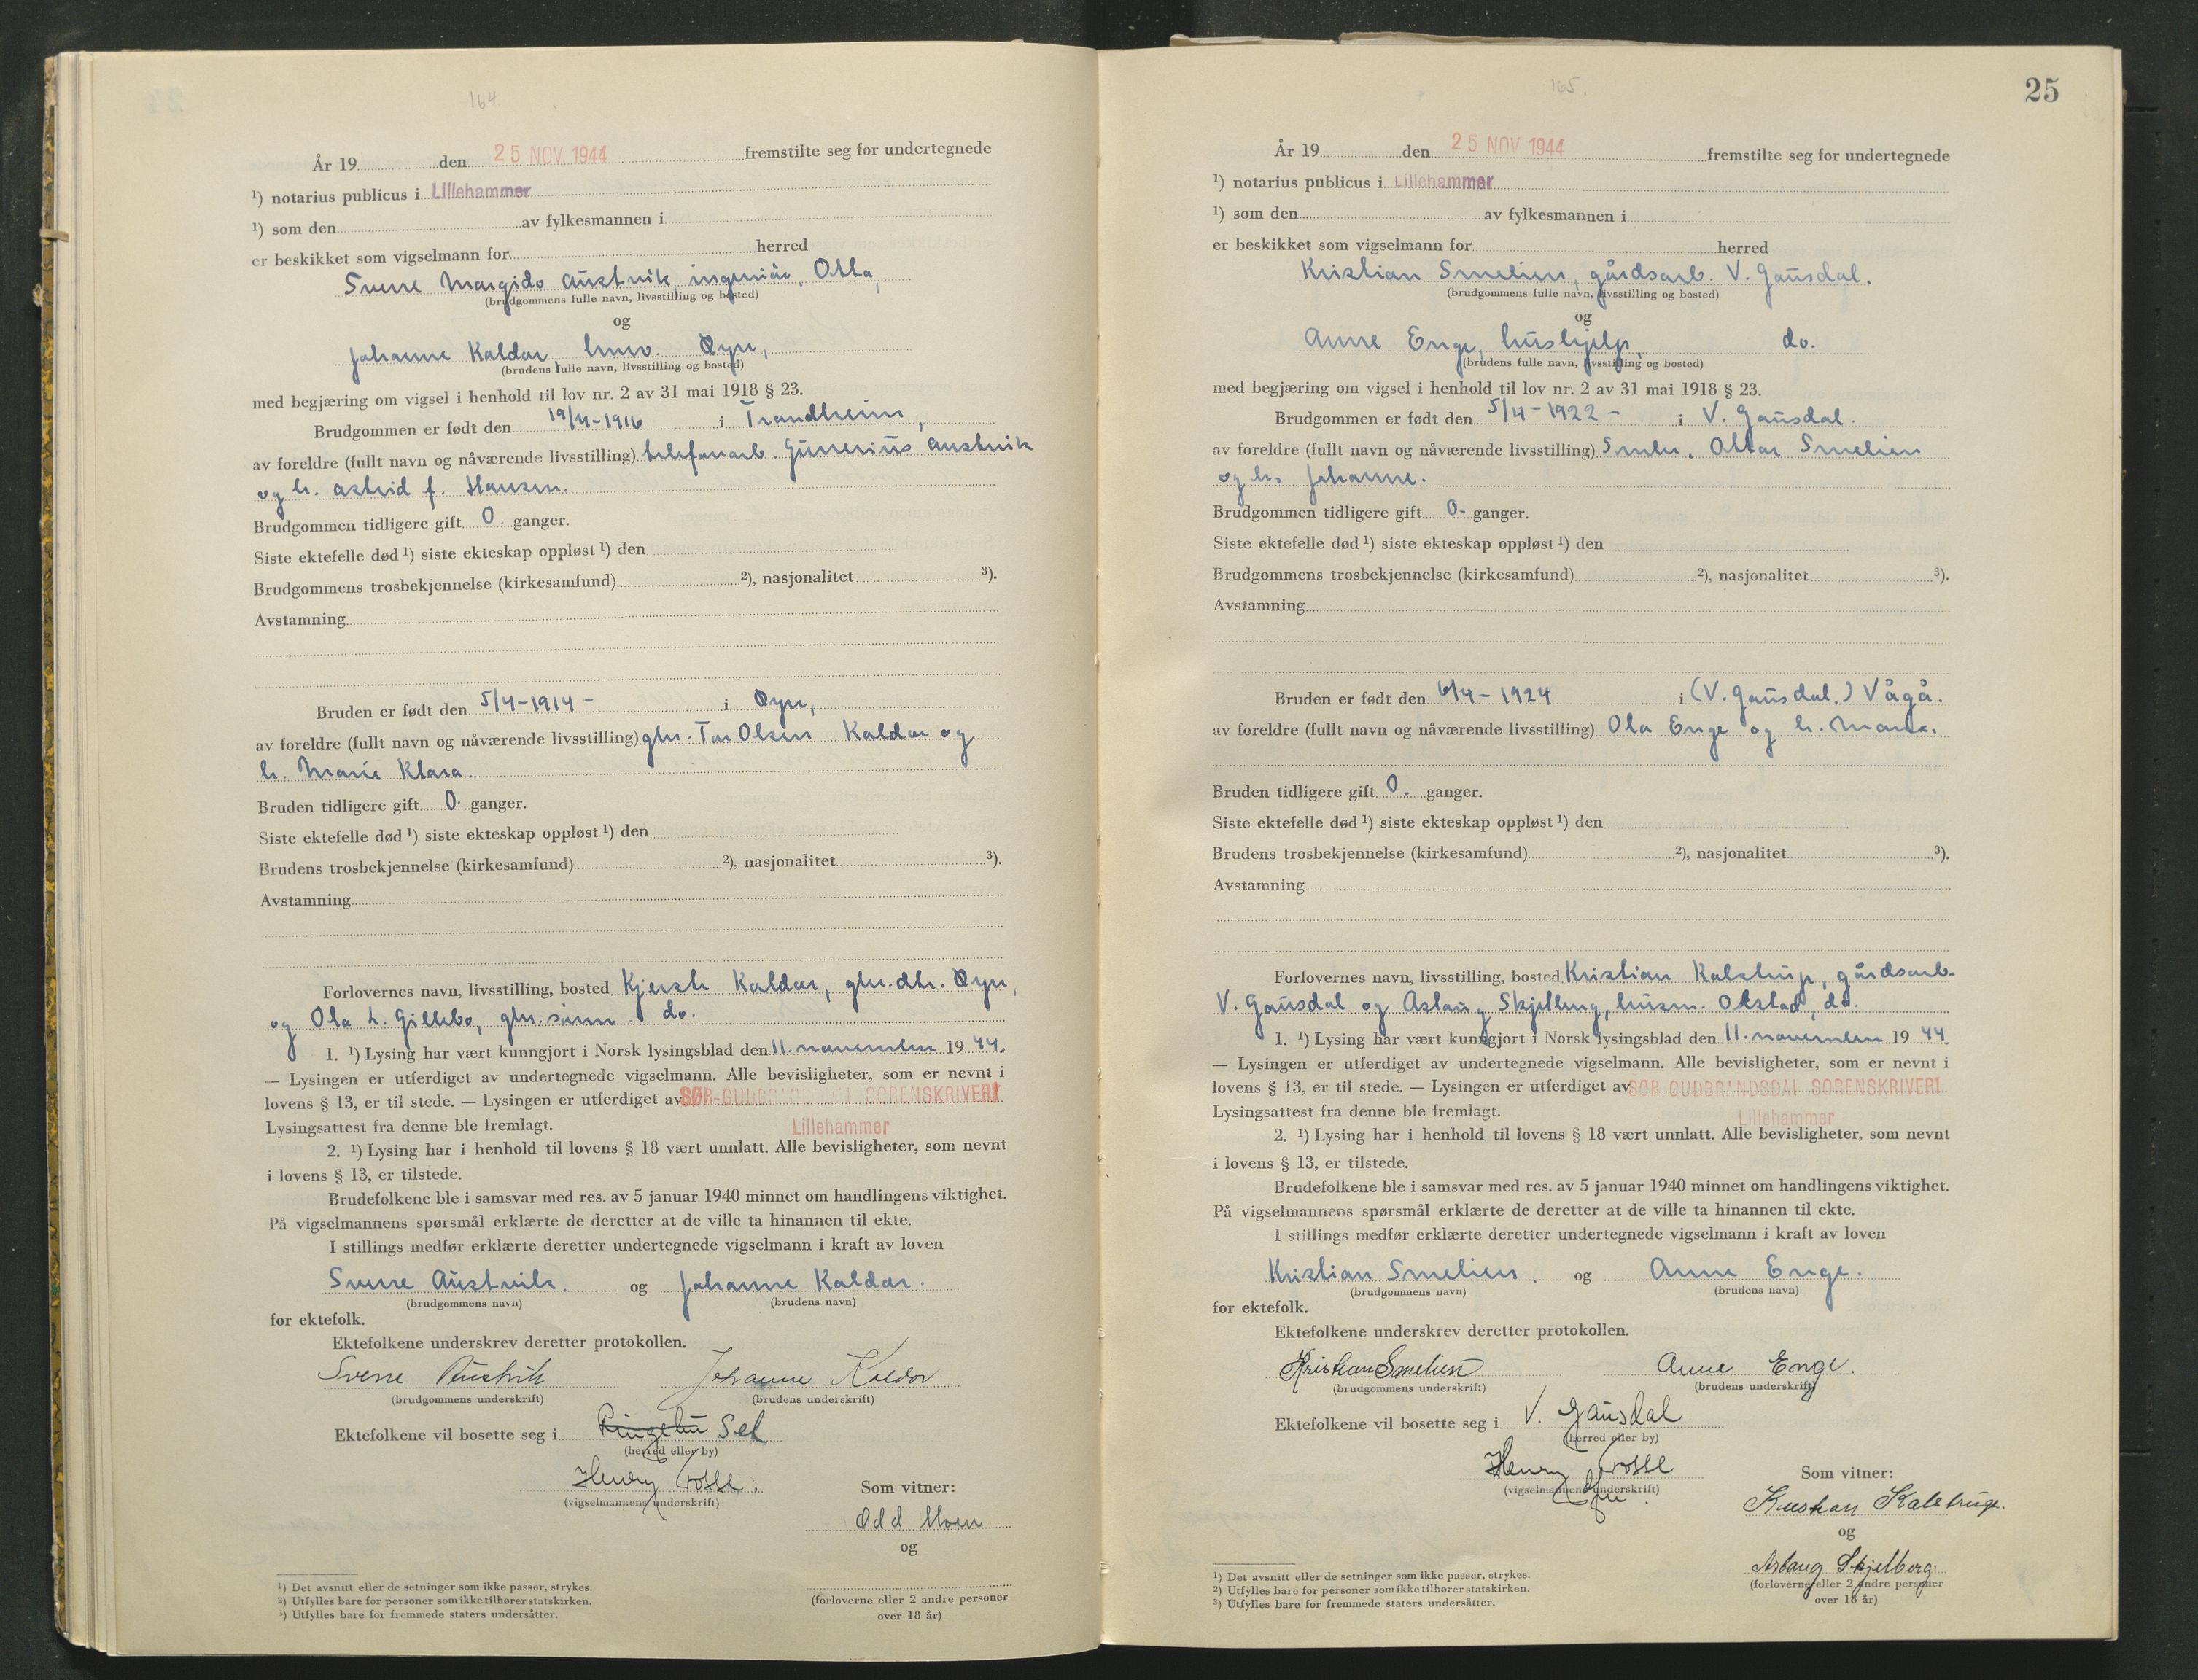 164.
År 19 den 25 NOV 1944 fremstilte seg for undertegnede
¹) notarius publicus i Lillehammer
¹) som den av fylkesmannen i
er beskikket som vigselmann for herred
Sverre Margido Austvik ingeniør, Otta,
(brudgommens fulle navn, livsstilling og bosted)
og
Johanne Kaldor, Øyer,
(brudens fulle navn, livsstilling og bosted)
med begjæring om vigsel i henhold til lov nr. 2 av 31 mai 1918 § 23.
Brudgommen er født den 19/4-1916 i Trondheim,
av foreldre (fullt navn og nåværende livsstilling) telefonarb. Gunerius Austvik
og h. Astrid f. Hansen.
Brudgommen tidligere gift 0 ganger.
Siste ektefelle død ¹) siste ekteskap oppløst ¹) den
Brudgommens trosbekjennelse (kirkesamfund) ²), nasjonalitet ³).
Avstamning
Bruden er født den 5/4-1914- i Øyer,
av foreldre (fullt navn og nåværende livsstilling) gbr. Tor Olsen Kaldor og
h. Marie Klara.
Bruden tidligere gift 0. ganger.
Siste ektefelle død ¹) siste ekteskap oppløst ¹) den
Brudens trosbekjennelse (kirkesamfund) ²), nasjonalitet ³).
Avstamning
Forlovernes navn, livsstilling, bosted Kjersti Kaldor, gbr.dtr. Øyer,
og Ola L. Gillebo, gbr.sønn do.
1. ¹) Lysing har vært kunngjort i Norsk lysingsblad den 11. november 19 44.
— Lysingen er utferdiget av undertegnede vigselmann. Alle bevisligheter, som er nevnt i
lovens § 13, er til stede. — Lysingen er utferdiget av SØR-GUDBRANDSDAL SORENSKRIVERI
Lysingsattest fra denne ble fremlagt. Lillehammer
2. ¹) Lysing har i henhold til lovens § 18 vært unnlatt. Alle bevisligheter, som nevnt
i lovens § 13, er tilstede.
Brudefolkene ble i samsvar med res. av 5 januar 1940 minnet om handlingens viktighet.
På vigselmannens spørsmål erklærte de deretter at de ville ta hinannen til ekte.
I stillings medfør erklærte deretter undertegnede vigselmann i kraft av loven
Sverre Austvik. og Johanne Kaldor.
(brudgommens navn) (brudens navn)
for ektefolk.
Ektefolkene underskrev deretter protokollen.
Sverre Austvik Johanne Kaldor
(brudgommens underskrift) (brudens underskrift)
Ektefolkene vil bosette seg i Ringebu Sel
(herred eller by)
Henry Crosse.
(vigselmannens underskrift)
Som vitner:
Odd Moen
og
(forloverne eller 2 andre personer
over 18 år)
¹) Det avsnitt eller de setninger som ikke passer, strykes.
²) Utfylles bare for personer som ikke tilhører statskirken.
³) Utfylles bare for fremmede staters undersåtter.
165.
25
År 19 den 25 NOV 1944 fremstilte seg for undertegnede
¹) notarius publicus i Lillehammer
¹) som den av fylkesmannen i
er beskikket som vigselmann for herred
Kristian Smelien, gårdsarb. V. Gausdal.
(brudgommens fulle navn, livsstilling og bosted)
og
Anne Enge, hushjelp, do.
(brudens fulle navn, livsstilling og bosted)
med begjæring om vigsel i henhold til lov nr. 2 av 31 mai 1918 § 23.
Brudgommen er født den 5/4-1922- i V. Gausdal.
av foreldre (fullt navn og nåværende livsstilling) Ottar Smelien
og h. Johanne.
Brudgommen tidligere gift 0- ganger.
Siste ektefelle død ¹) siste ekteskap oppløst ¹) den
Brudgommens trosbekjennelse (kirkesamfund) ²), nasjonalitet ³).
Avstamning
Bruden er født den 6/4-1924 i (V. Gausdal.) Vågå.
av foreldre (fullt navn og nåværende livsstilling) Ola Enge og h.
Bruden tidligere gift 0. ganger.
Siste ektefelle død ¹) siste ekteskap oppløst ¹) den
Brudens trosbekjennelse (kirkesamfund) ²), nasjonalitet ³).
Avstamning
Forlovernes navn, livsstilling, bosted Kristian Kalstrup, gårdsarb.
V. Gausdal og Aslaug Skjelberg, husm. do.
1. ¹) Lysing har vært kunngjort i Norsk lysingsblad den 11. november 19 44
— Lysingen er utferdiget av undertegnede vigselmann. Alle bevisligheter, som er nevnt i
lovens § 13, er til stede. — Lysingen er utferdiget av SØR GUDBRANDSDAL SORENSKRIVERI
Lysingsattest fra denne ble fremlagt. Lillehammer
2. ¹) Lysing har i henhold til lovens § 18 vært unnlatt. Alle bevisligheter, som nevnt
i lovens § 13, er tilstede.
Brudefolkene ble i samsvar med res. av 5 januar 1940 minnet om handlingens viktighet.
På vigselmannens spørsmål erklærte de deretter at de ville ta hinannen til ekte.
I stillings medfør erklærte deretter undertegnede vigselmann i kraft av loven
Kristian Smelien. og Anne Enge.
(brudgommens navn) (brudens navn)
for ektefolk.
Ektefolkene underskrev deretter protokollen.
Kristian Smelien Anne Enge.
(brudgommens underskrift) (brudens underskrift)
Ektefolkene vil bosette seg i V. Gausdal
(herred eller by)
Henry Crosse
(vigselmannens underskrift)
Som vitner:
Kristian Kalstrup.
og
Aslaug Skjelberg.
(forloverne eller 2 andre personer
over 18 år)
¹) Det avsnitt eller de setninger som ikke passer, strykes.
²) Utfylles bare for personer som ikke tilhører statskirken.
³) Utfylles bare for fremmede staters undersåtter.